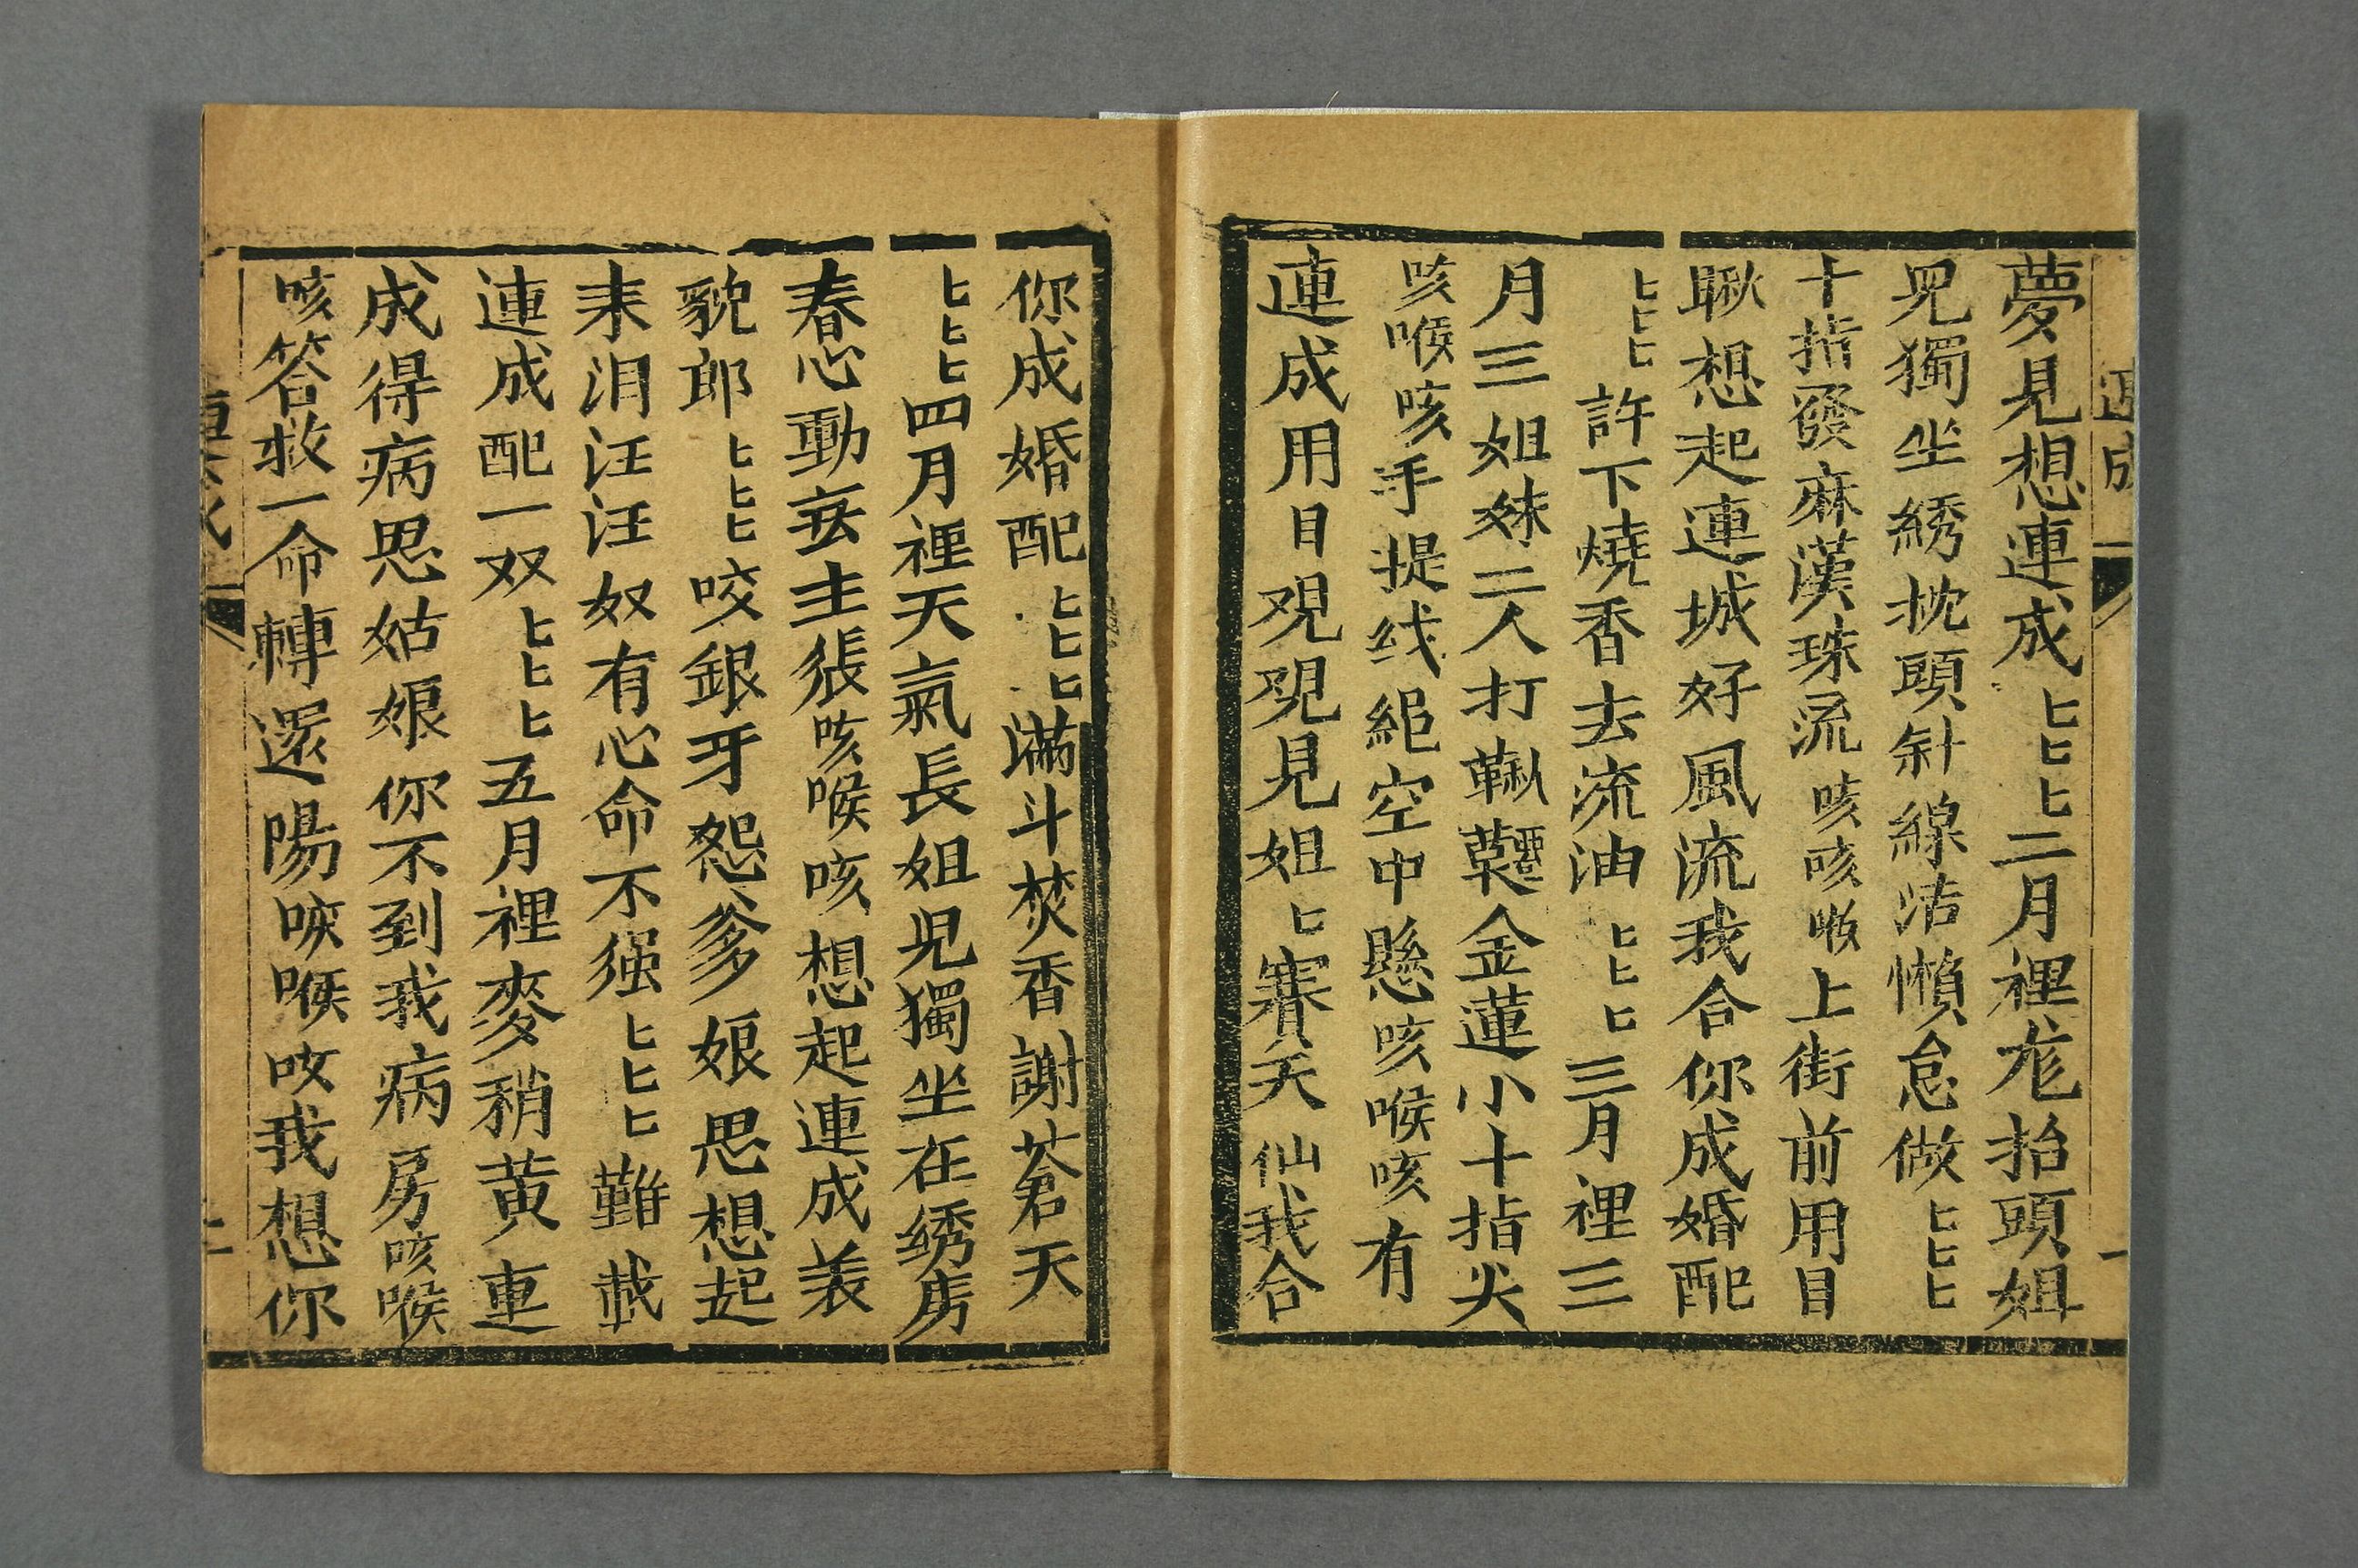 連成
夢見想連成〻〻〻二月裡龙抬頭姐
児獨坐綉枕頭針線活懶怠做〻〻〻
十指發麻漢珠流咳咳喉上街前用目
瞅想起連城好風流我合你成婚配
〻〻〻許下燒香去流油〻〻〻三月裡三
月三姐妹二人打鞦韆金蓮小十指尖
咳喉咳手提线繩空中懸咳喉咳有
連成用目观观見姐〻賽天仙我合
你成婚配〻〻〻滿斗焚香謝蒼天
〻〻〻四月裡天氣長姐児獨坐在綉房
春心動无主張咳喉咳想起連成美
貌郎〻〻〻咬銀牙怨爹娘思想起
来泪汪汪奴有心命不强〻〻〻難
連成配一双〻〻〻五月裡麥稍黄連
成得病思姑娘你不到我病房咳喉
咳答救一命轉還陽咳喉咳我想你